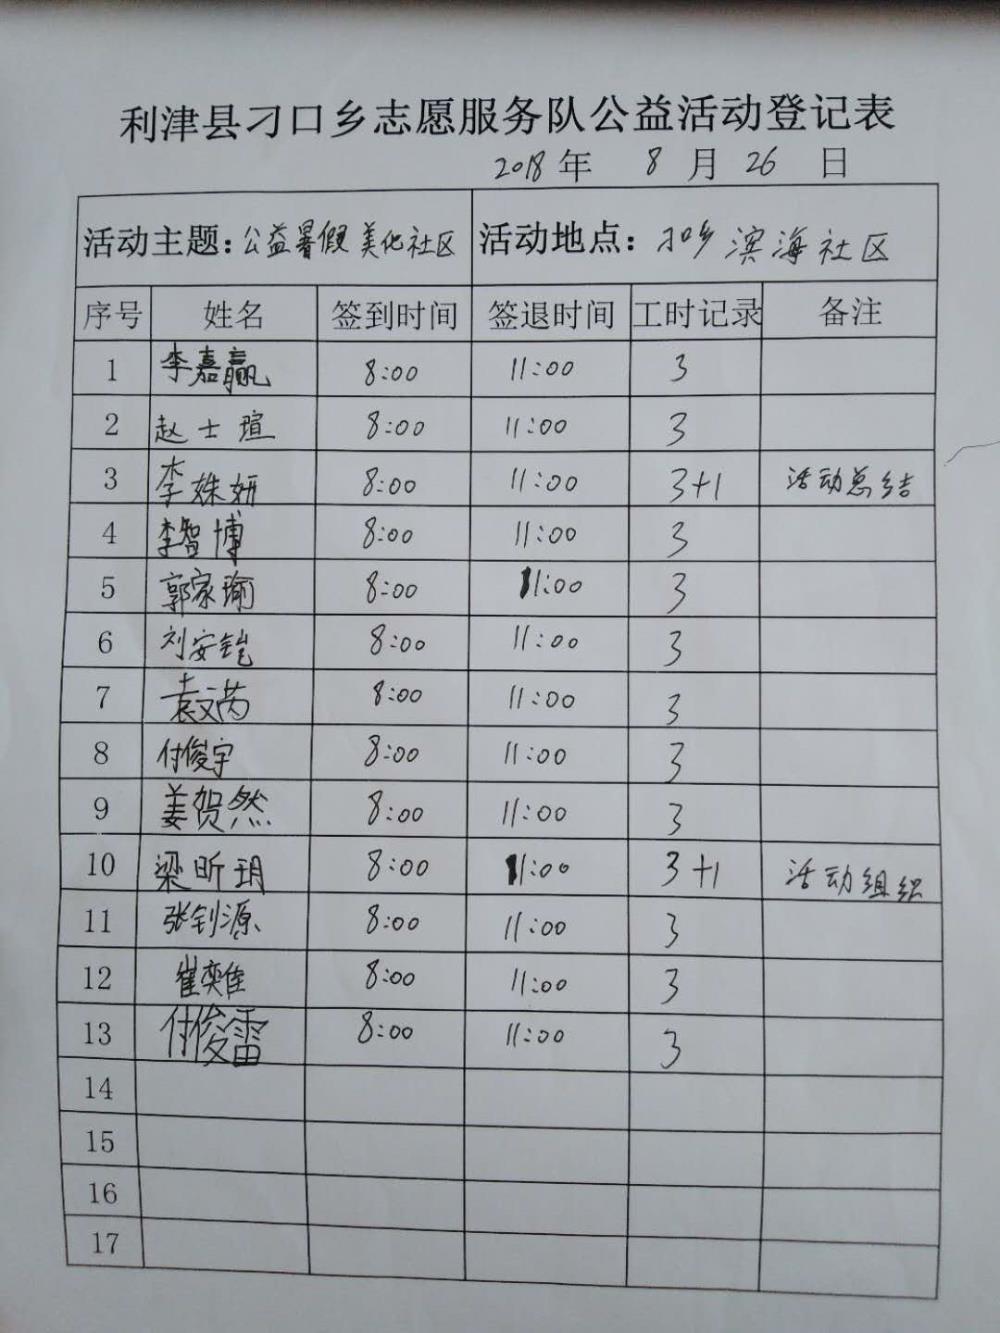 利津县刁口乡志愿服务队公益活动登记表
2018 年 8 月 26 日
活动主题：公益暑假 美化社区 活动地点：刁口乡 滨海社区
序号 姓名 签到时间 签退时间 工时记录 备注
1 李嘉赢 8:00 11:00 3
2 赵士瑄 8:00 11:00 3
3 李姝妍 8:00 11:00 3+1 活动总结
4 李智博 8:00 11:00 3
5 郭家瑜 8:00 11:00 3
6 刘安铠 8:00 11:00 3
7 袁文芮 8:00 11:00 3
8 付俊宇 8:00 11:00 3
9 姜贺然 8:00 11:00 3
10 梁昕玥 8:00 11:00 3+1 活动组织
11 张钊源 8:00 11:00 3
12 崔奕雄 8:00 11:00 3
13 付俊雷 8:00 11:00 3
14
15
16
17